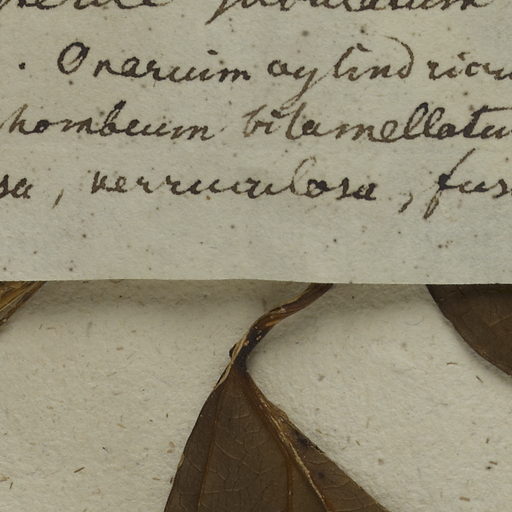 subulatum
. Ovarium cylindricu
rhombeum bilamellatu
sa, verruculosa, fus